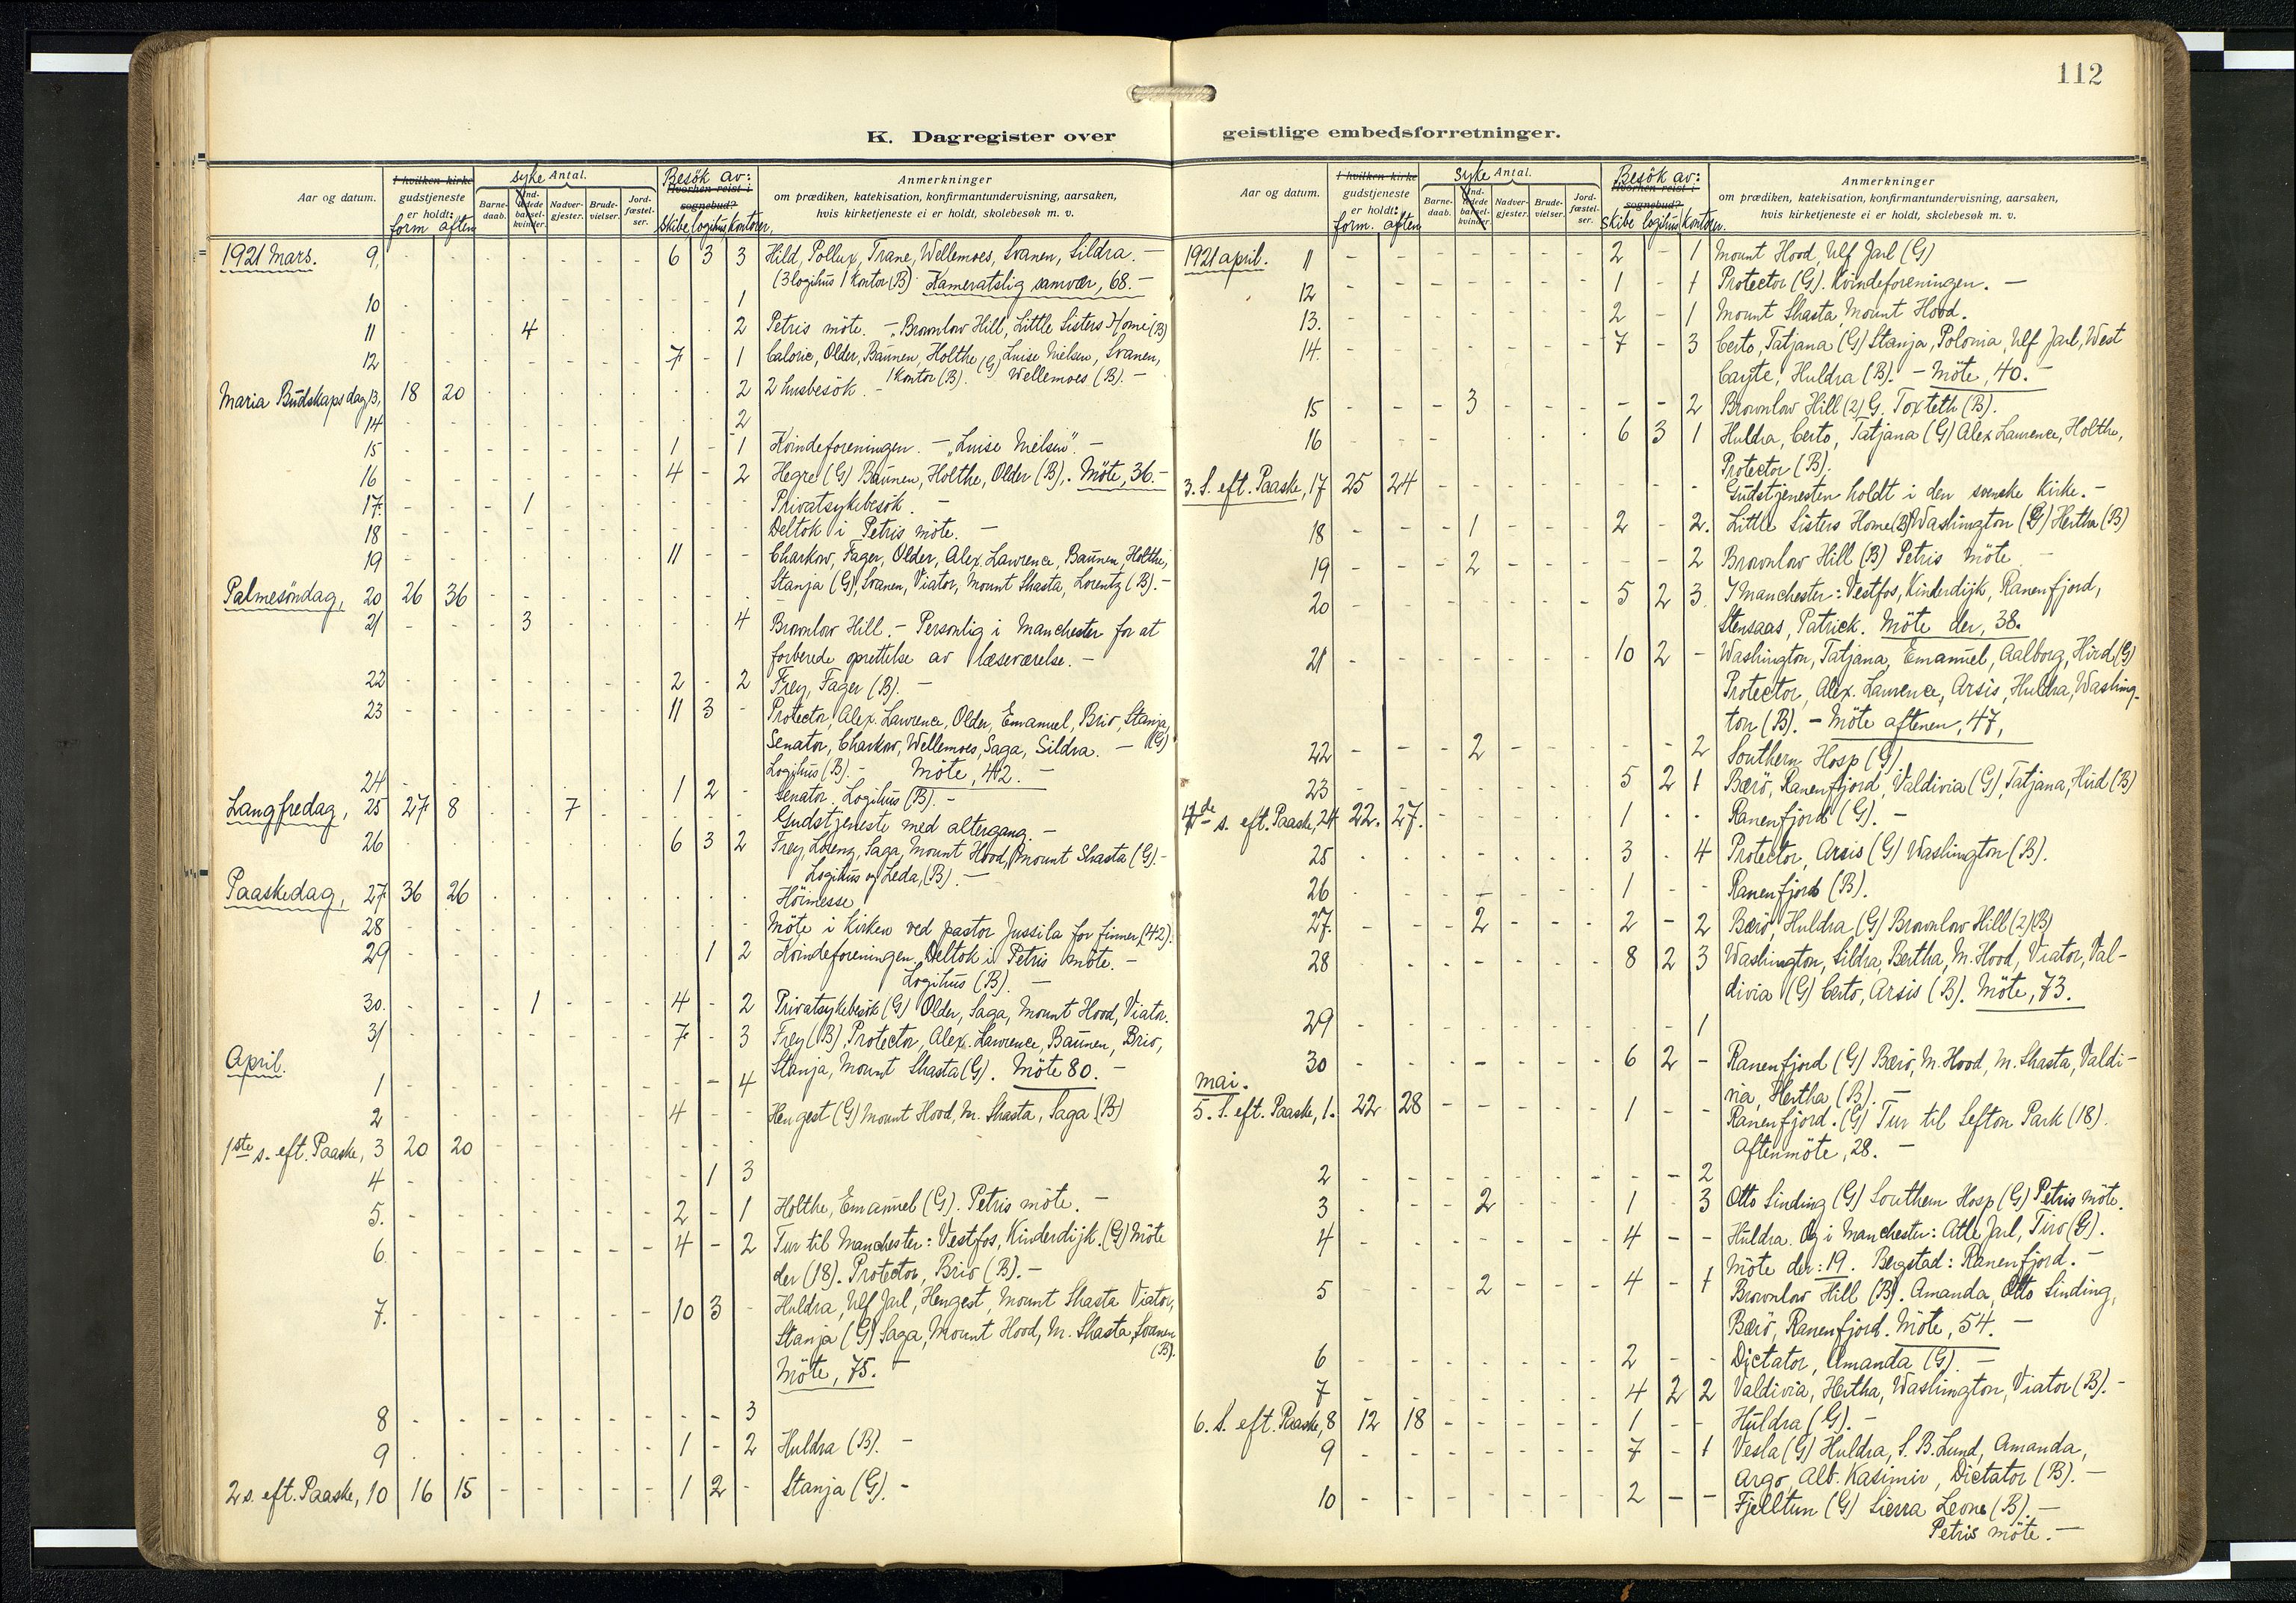 112
K. Dagregister over geistlige embedsforretninger.
Aar og datum. I hvilken kirke gudstjeneste er holdt: form aften Syke Antal. Barne-daab. Ind-ledede barsel-kvinder. Nadver-gjester. Brude-vielser. Jord-fæstel-ser. Besök av: Hvorhen reist i sognebud? Skibe logihus kontorer, Anmerkninger om prædiken, katekisation, konfirmantundervisning, aarsaken, hvis kirketjeneste ei er holdt, skolebesøk m. v.
1921 Mars. 9, 6 3 3 Hild, Pollux, Trane, Wellemoes, Svanen, Sildra. –
(3 logihus 1 kontor (B) Kameratslig samvær, 68. –
10 1
11 4 2 Petris möte. – Brownlow Hill, Little Sisters Home (B)
12 7 - 1 Caloric, Older, Baunen, Holthe (G) Luise Nielsen, Svanen,
1 kontor (B). Wellemoes (B). –
Maria Budskaps dag 13, 18 20 2 2 husbesök –
14 2
15 1 - 1 Kvindeforeningen. – "Luise Nielsen". –
16 4 - 2 Hegre (G) Baunen, Holthe, Older (B). Möte, 36. –
17. 1 Privatsykebesök. –
18 Deltok i Petris möte. –
19 11 - - Charkow, Fager, Older, Alex. Lawrence, Baunen, Holthe,
Stanja (G), Svanen, Viator, Mount Shasta, Lorentz (B). –
Palmesöndag, 20 26 36
21 3 4 Brownlow Hill. – Personlig i Manchester for at
forberede oprettelse av læseværelse. –
22 2 - 2 Frey, Fager (B). –
23 11 3 - Protector, Alex. Lawrence, Older, Emanuel, Brio, Stanja, (G)
Senator, Charkow, Wellemoes, Saga, Sildra. –
Logihus (B). – Möte, 42. –
24 1 2 - Senator. Logihus (B). –
Langfredag, 25 27 8 7 Gudstjeneste med altergang. –
26 6 3 2 Frey, Lorenz, Saga, Mount Hood, Mount Shasta (G). –
Logihus og Leda, (B). –
Paaskedag, 27 36 26 Höimesse
28 Möte i kirken ved pastor Jussila for finner, (42).
29 1 2 Kvindeforeningen. Deltok i Petris möte. –
Logihus (B). –
30. 1 4 - 2 Privatsykebesök (G) Older, Saga, Mount Hood, Viator.
31 7 - 3 Frey (B), Protector, Alex. Lawrence, Baunen, Brio,
Stanja, Mount Shasta (G). Möte 80. –
April.
1 - 4
2 4 - - Hengest (G) Mount Hood, M. Shasta, Saga (B)
1ste s. eft. Paaske, 3 20 20
4 - 1 3
5. 2 - 1 Holthe, Emanuel (G). Petris möte. –
6 4 - 2 Tur til Manchester: Vestfos, Kinderdijk. (G) Möte
der (18). Protector, Brio (B). –
7. 10 3 - Huldra, Ulf Jarl, Hengest, Mount Shasta Viator,
Stanja (G) Saga, Mount Hood, M. Shasta, Svanen (B).
Möte, 75. –
8 - - 3
9 1 - 2 Huldra (B). –
2 s. eft. Paaske, 10 16 15 1 2 - Stanja (G). –
Aar og datum. I hvilken kirke gudstjeneste er holdt: form. aften Syke Antal. Barne-daab. Ind-ledede barsel-kvinder. Nadver-gjester. Brude-vielser. Jord-fæstel-ser. Besök av: Hvorhen reist i sognebud? Skibe logihus kontorer. Anmerkninger om prædiken, katekisation, konfirmantundervisning, aarsaken, hvis kirketjeneste ei er holdt, skolebesøk m. v.
1921 april. 11 2 - 1 Mount Hood, Ulf Jarl (G)
12 1 - 1 Protector (G). Kvindeforeningen. –
13. 2 - 1 Mount Shasta, Mount Hood.
14. 7 - 3 Certo, Tatjana (G) Stanja, Polonia, Ulf Jarl, West
Cayte, Huldra (B). – Möte, 40. –
15 3 - - 2 Brownlow Hill (2) G. Toxteth (B).
16 6 3 1 Huldra, Certo, Tatjana (G) Alex Lawrence, Holthe,
Protector (B).
3. S. eft. Paaske, 17 25 24 - - - Gudstjenesten holdt i den svenske kirke. –
18 1 2 - 2. Little Sisters Home (B) Washington (G) Hertha (B)
19 2 - - 2 Brownlow Hill (B) Petris möte –
20 5 2 3. I Manchester: Vestfos, Kinderdijk, Ranenfjord,
Stensaas, Patrick. Möte der, 38.
21 10 2 - Washington, Tatjana, Emanuel, Aalborg, Hird (G)
Protector, Alex. Lawrence, Arsis, Huldra, Washing-
ton (B). – Möte aftenen, 47,
22 2 - - 2 Southern Hosp (G).
23 5 2 1 Bærö, Ranenfjord, Valdivia (G), Tatjana, Hird (B)
4de s. eft. Paaske, 24 22. 27. 1 - - Ranenfjord (G). –
25 3 - 4 Protector, Arsis (G) Washington (B).
26 - 1 - - Ranenfjord (B).
27. 2 2 - 2 Bærö, Huldra (G) Brownlow Hill (2) (B)
28 8 2 3 Washington, Sildra, Bertha, M. Hood, Viator, Val-
divia (G) Certo, Arsis (B). Möte, 73.
29 - - 1
30 6 2 - Ranenfjord (G) Bærö, M. Hood, M. Shasta, Valdi-
via, Hertha (B). –
mai.
5. S. eft. Paaske, 1. 22 28 1 - - Ranenfjord. (G) Tur til Sefton Park (18).
Aftenmöte, 28. –
2 - - 2
3 2 1 - 3 Otto Sinding (G) Southern Hosp (G) Petris möte.
4 4 - - Huldra. Og i Manchester: Atle Jarl, Tiro (G).
Möte der: 19. Bergstad: Ranenfjord. –
5 2 4 - 1 Brownlow Hill (B). Amanda, Otto Sinding,
Bærö, Ranenfjord. Möte, 54. –
6 2 - - Dictator, Amanda (G). –
7 4 2 2 Valdivia, Hertha, Washington, Viator (B). –
6. S. eft. Paaske, 8 12 18 1 - - Huldra (G). –
9 7 - 1 Vesla (G) Huldra, S. B. Lund, Amanda,
Argo, Alb. Kasimir, Dictator (B). –
10 2 - - Fjelltun (G) Sierra Leone (B). –
Petris möte. –